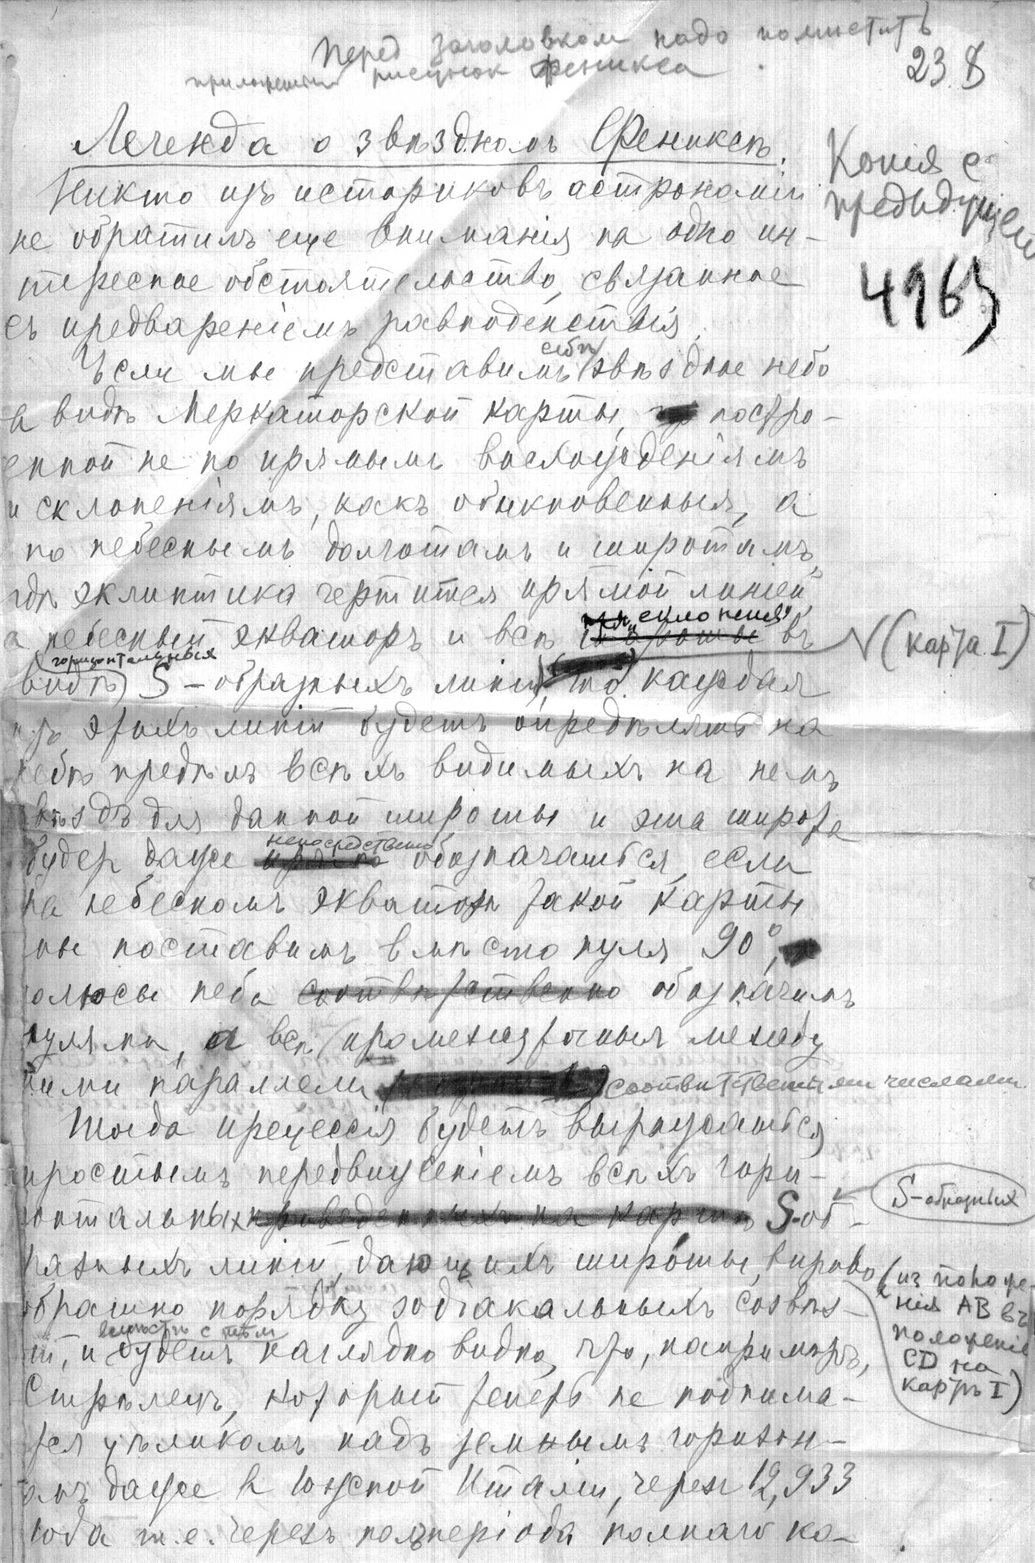 Перед заголовком надо поместить
приложенный рисунок Феникса.
23 8
Легенда о звѣздномъ Фениксѣ.
Копія с
предыдущей
4963
Никто изъ историковъ астрономіи
не обратилъ еще вниманія на одно ин-
тересное обстоятельство, связанное
съ предвареніемъ равноденствія.
Если мы представимъ себѣ звѣздное небо
въ видѣ Меркаторской карты, постро-
енной не по прямымъ восхожденіямъ
и склоненіямъ, какъ обыкновенныя, а
по небеснымъ долготамъ и широтамъ,
гдѣ эклиптика чертится прямой линіей
а небесный экваторъ и всѣ склоненія въ
(карта I)
видѣ горизонтальныхъ S-образныхъ линій, то каждая
изъ этихъ линій будетъ опредѣлять на
небѣ предѣлъ всѣхъ видимыхъ на немъ
звѣздъ для данной широты и эта широта
будет даже непосредственно обозначаться, если
на небесномъ экваторѣ такой карты
мы поставимъ вмѣсто нуля 90°,
полюсы неба соотвѣтственно обозначимъ
нулями, а всѣ промежуточныя между
ними параллели соответственными числами.
Тогда прецессія будетъ выражаться
простымъ передвиженіемъ всѣхъ гори-
зонтальныхъ проведенныхъ на картѣ S-об-
S-образных
разныхъ линій, дающихъ широты, вправо
(из положе-
нія AB въ
положеніе
CD на
картѣ I)
обратно порядку зодіакальныхъ созвѣз-
дій, и вместѣ с тѣм будетъ наглядно видно, что, напримѣръ,
Стрѣлецъ, который теперь не поднима-
ется цѣликомъ надъ земнымъ горизон-
томъ даже въ Южной Италіи, черезъ 12,933
года т.е. черезъ полперіода полнаго ко-